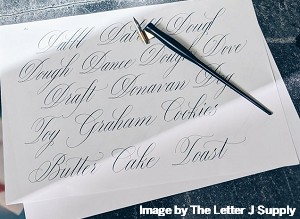 Dough Dance Dough Dove
Draft Donavan Dog
Toy Graham Cookies
Butter Cake Toast
Image by The Letter J Supply